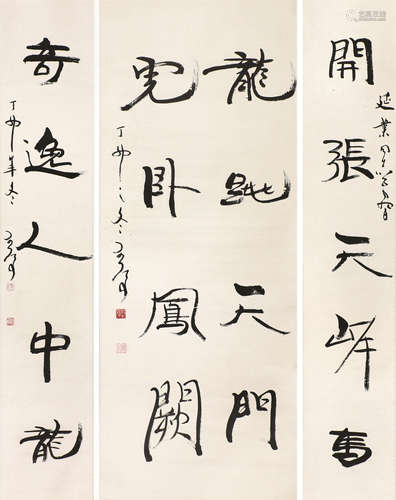 開張天岸馬
延業同學
龍跳天門
虎卧鳳闕
丁卯之冬
奇逸人中龍
丁卯年冬